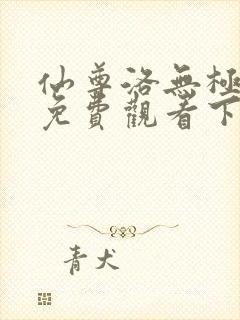 仙尊洛無極
免費觀看下
青犬